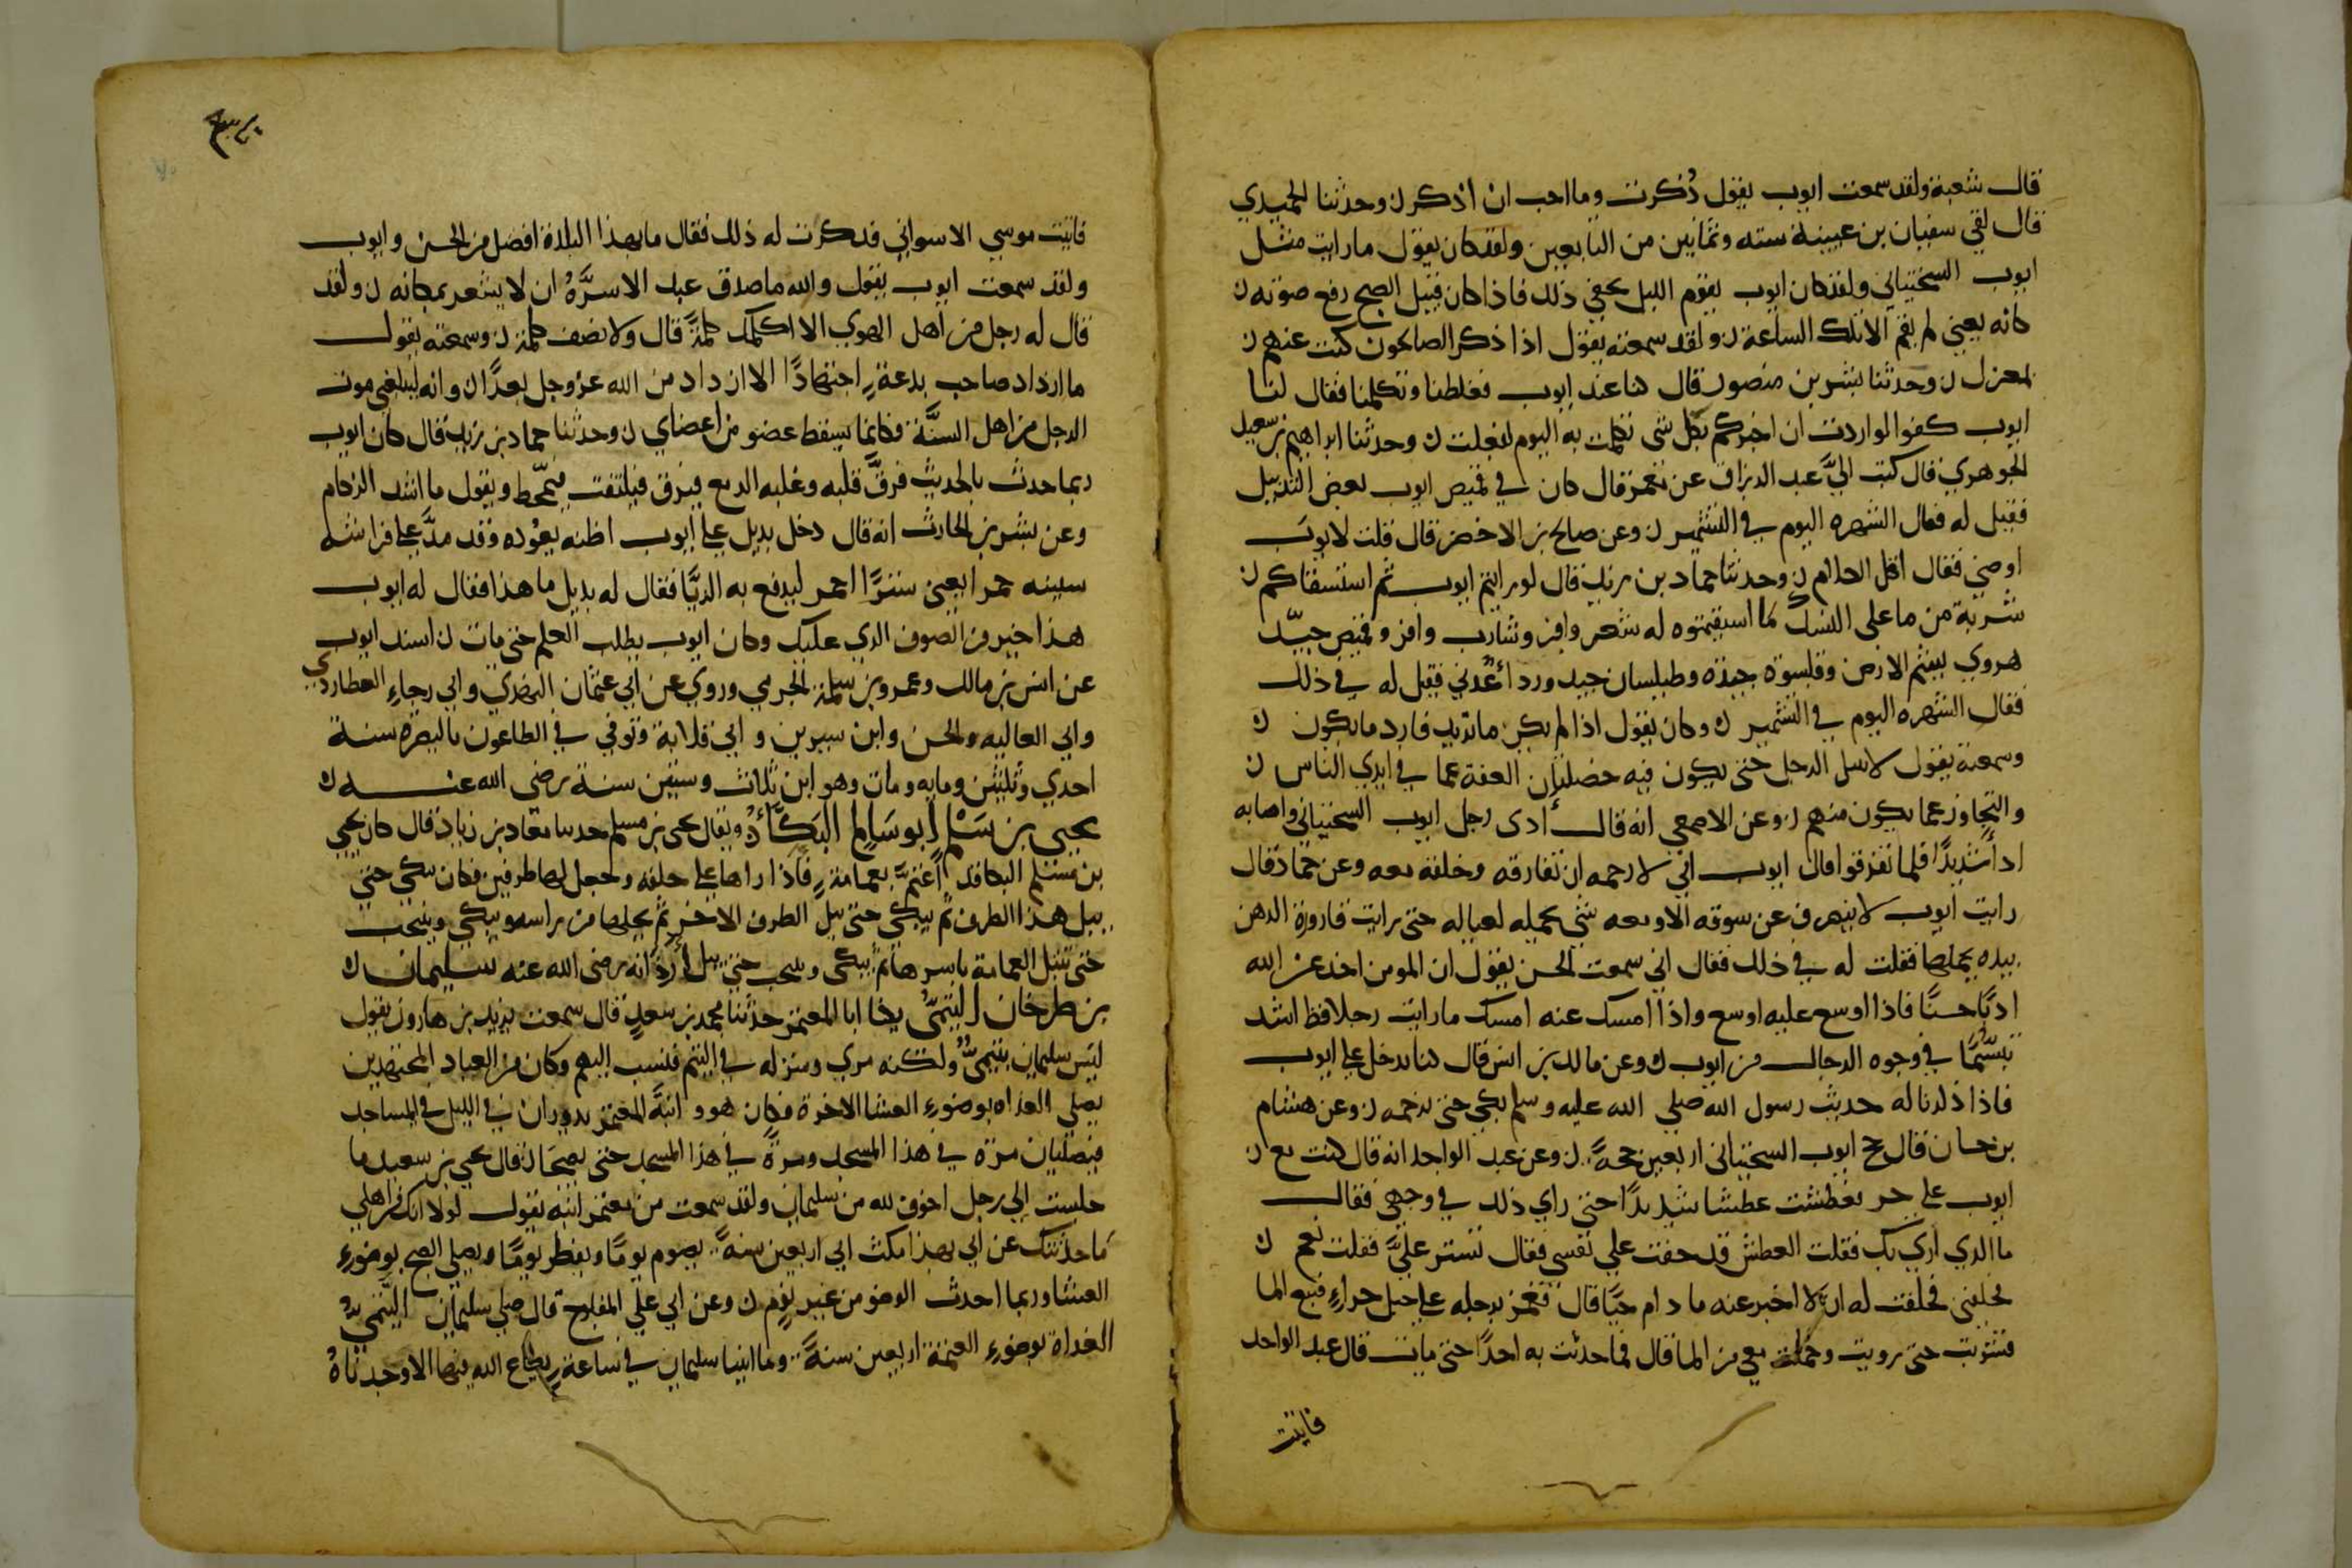 قال شعبة ولقد سمعت ايوب يقول ذُكرت وما احب ان اذكر ن وحدثنا الحميدي
قال لقي سفيان بن عيينة سته وثمانين من التابعين ولقد كان يقول ما رايت مثل
ايوب السختياني ولقد كان ايوب يقوم الليل يخفي ذلك فاذا كان قبيل الصبح رفع صوته ن
كانه يعني لم يقم الا تلك الساعة ن ولقد سمعته يقول اذا ذكر الصالحون كنت عنهم ن
بمعزل ن وحدثنا بشر بن منصور قال كنا عند ايوب فغلطنا وتكلمنا فقال لنا
ايوب كفوا لو اردت ان اخبركم بكل شي تكلمت به اليوم لفعلت ن وحدثنا ابراهيم بن سعيد
الجوهري قال كتب اليَّ عبد الرزاق عن معمر قال كان في قميص ايوب بعض التذييل
فقيل له فقال الشهره اليوم في التشمير ن وعن صالح بن الاخضر قال قلت لايوب
اوصني فقال اقل الكلام ن وحدثنا حماد بن زيد قال لو رايتم ايوب ثم استسقاكم ن
شربة من ما على النسك لما اسقيتموه له شعر وافر وشارب وافر وقميص جيّد
هروي يشم الارض وقلنسوة جيدة وطيلسان جيد وردا عدني فقيل له في ذلك
فقال الشهره اليوم في التشمير ن وكان يقول اذا لم يكن ما تريد فارد ما يكون ن
وسمعته يقول لا ينبل الرجل حتى يكون فيه خصلتان العفة عما في ايدي الناس ن
والتجاوز عما يكون منهم ن وعن الاصمعي انه قال أدى رجل ايوب السختياني واصابه
ادأ شديدًا فلما تفرقوا قال ايوب اني لارحمه ان نفارقه وخلقه معه وعن حماد قال
رايت ايوب لا ينصرف عن سوقه الا ومعه شي يحمله لعياله حتى رايت قارورة الدهن
بيده يحملها فقلت له في ذلك فقال اني سمعت الحسن يقول ان المومن اخذ عن الله
ادبًا حسنًا فاذا اوسع عليه اوسع واذا امسك عنه امسك ما رايت رجلا قط اشد
تبسُّمًا في وجوه الرجال من ايوب ن وعن مالك بن انس قال كنا ندخل على ايوب
فاذا ذكرنا له حديث رسول الله صلى الله عليه وسلم بكي حتى نرحمه ن وعن هشام
بن حسان قال حج ايوب السختياني اربعين حجةً ن وعن عبد الواحد انه قال كنت مع ن
ايوب على حر فعطشت عطشا شديدًا حتى راي ذلك في وجهي فقال
ما الذي اري بك فقلت العطش قد خفت علي نفسي فقال تستر عليَّ فقلت نعم ن
فحلفني فحلفت له ان لا اخبر عنه ما دام حيًّا قال فغمز برجله على جبل حراءٍ فنبع الما
فشربت حتى رويت وحملت معي من الما قال فما حدثت به احدًا حتى مات قال عبد الواحد
فاتيت
فاتيت موسي الاسواني فذكرت له ذلك فقال ما بهذا البلدة افضل من الحسن وايوب
ولقد سمعت ايوب يقول والله ما صدق عبد الا سرَّهُ ان لا يشعر بمكانه ن ولقد
قال له رجل من اهل الهوي الا اكلمك كلمةً قال ولا نصف كلمة ن وسمعته يقول
ما ازداد صاحب بدعةٍ اجتهادًا الا ازداد من الله عز وجل بعدًا ن وانه ليبلغني موت
الرجل من اهل السنَّة فكانما يسقط عضو من اعضاي ن وحدثنا حماد بن زيد قال كان ايوب
ربما حدث بالحديث فرقَّ قلبه وغلبه الدمع فيلتفت فيتمخّط ويقول ما اشد الزكام
وعن بشر بن الحارث انه قال دخل بديل على ايوب اظنه يعوده وقد مدَّ على فراشه
سبنيه حمرا يعني سترًا احمر ليدفع به الريا فقال له بديل ما هذا فقال له ايوب
هذا خير من الصوف الذي عليك وكان ايوب يطلب العلم حتى مات ن اسند ايوب
عن انس بن مالك وعمرو بن سلمة الجرمي وروي عن ابي عثمان النهدي وابي رجاءِ العطاردي
وابي العاليه والحسن وابن سيرين وابي قلابة وتوفي في الطاعون بالبصره سنة
احدي وثلثين ومايه ومات وهو ابن ثلاث وستين سنة رضي الله عنه ن
يحيى بن سَلْم ابو سَالم البَكَّاءُ ويقال يحيى بن مسلم حدثنا معاذ بن زياد قال كان يحيي
بن مسلم البكا قد اعتمَّ بعمامةٍ فاذا اداها على حلقه وجعل لها طرفين فكان يبكي حتى
يبل هذا الطرف ثم يبكي حتى يبل الطرف الاخر ثم يحلها من راسه ويبكي وينحب
حتى تبتل العمامة باسرها ثم يبكي وينحب حتى يبل أردانه رضى الله عنه سليمان ن
بن طرخان التيميُّ يكنا ابا المعتمر حدثنا محمد بن سعد قال سمعت يزيد بن هارون يقول
ليس سليمان بتيميّ ولكنه مري ومنزله في التيم فنسب اليهم وكان من العباد المجتهدين
يصلي الغداه بوضوء العشا الاخرة وكان هو وابنهَ المعتمر يدوران في الليل في المساجد
فيصليان مرّة في هذا المسجد ومرةً في هذا المسجد حتى يصبحَا ن قال يحيي بن سعيد ما
جلست الي رجل اخوف لله من سليمان ولقد سمعت من معتمر ابنه يقول لولا انك من اهلي
ما حدّثتك عن ابي بهذا مكث ابي اربعين سنةً يصوم يومًا ويفطر يومًا ويصلي الصبح بوضوءِ
العشا وربما احدث الوضو من غير نومٍ ن وعن ابي علي المفلوح قال صلي سليمان التيميُّ
الغداة بوضوءِ العتمة اربعين سنةً وما اتينا سليمان في ساعةٍ يطاع الله فيها الا وجدناهُ